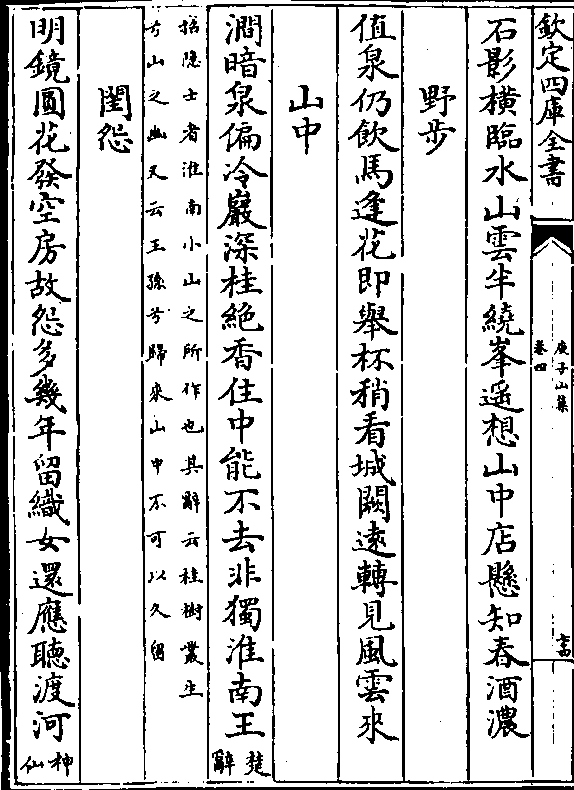 欽定四庫全書
庾子山集
卷四
七四
石影橫臨水山雲半繞峯遥想山中店懸知春酒濃
野步
值泉仍飲馬逢花即舉杯稍看城闕遠轉見風雲來
山中
澗暗泉偏冷巖深桂絶香住中能不去非獨淮南王
楚辭
招隐士者淮南小山之所作也其辭云桂樹叢生
兮山之幽又云王孫兮歸來山中不可以久留
閨怨
明鏡圓花發空房故怨多幾年留織女還應聴渡河
神仙